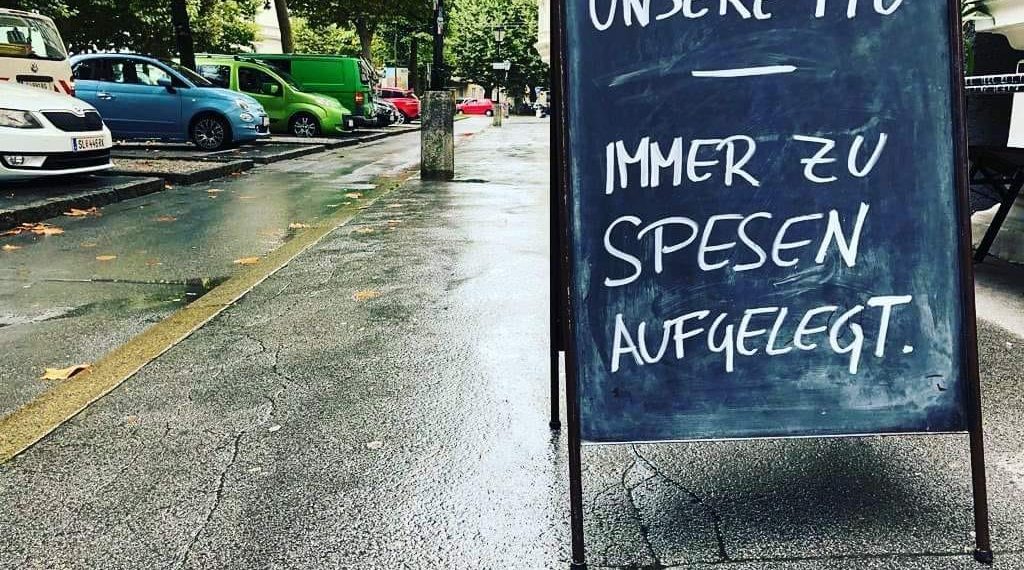 UNSERE
IMMER ZU
SPESEN
AUFGELEGT.
SL 446RK